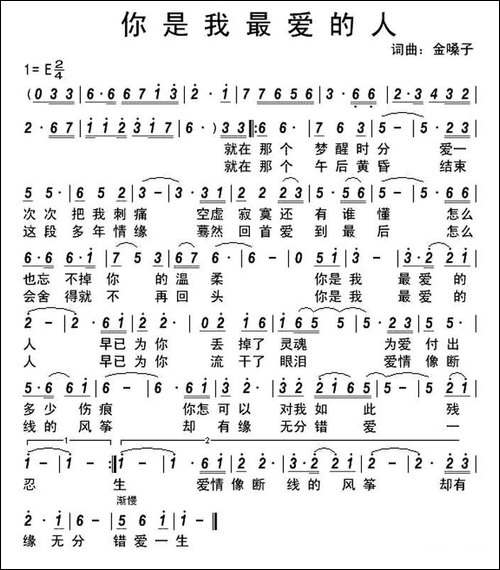 你是我最爱的人
词曲：金嗓子
1=E 2/4
(0 3 3 | 6·6 6 7 1 3 | 2·1 | 7 7 6 5 6 | 3·6 6·1 | 2 4 3 2 |
2·6 7 | 1 1 2 3 1 7 | 6·) 3 3 :6 6· | 7 6 3 | 5 - | 5·2 3 |
就在那个 梦醒时分 爱一
就在那个 午后黄昏 结束
5 5· | 6 5 2 | 3 - | 3·3 1 | 2 2 3 | 5·5 6 | 5 - | 5·6 1 |
次次 把我刺痛 空虚 寂寞还 有谁懂 怎么
这段 多年情缘 蓦然 回首爱 到最后 怎么
6·6 | 6·1 | 7 5 3 | 6 - | 6 - | 0 5 1 | 3 - | 3·2 1 |
也忘 不掉你 的温柔 你是我 最爱的
会舍 得就不 再回头 你是我 最爱的
2 - | 2·6 1 | 2·2 3 | 0 2 1 6 | 1 6 5 | 5·2 3 | 5·2 1 |
人 早已为你 丢掉了灵魂 为爱付出
人 早已为你 流干了眼泪 爱情像断
5·6 6 1 | 6 - | 6·1 | 3·2 2 | 2 1 6 5 | 5 - | 5 2 1 |
多少伤痕 你怎可以 对我如此 残
线的风筝 却有缘 无分错爱 一
1 2
1 - | 1 - :1 - | 1·6 1 | 2·2 3 | 3·2 2 1 | 6 - | 6·2 1 |
忍 生 爱情像断 线的风筝 却有
渐慢
2·1 | 6 - | 5 6 1 | 1 - | 1 - ‖
缘无分 错爱一生